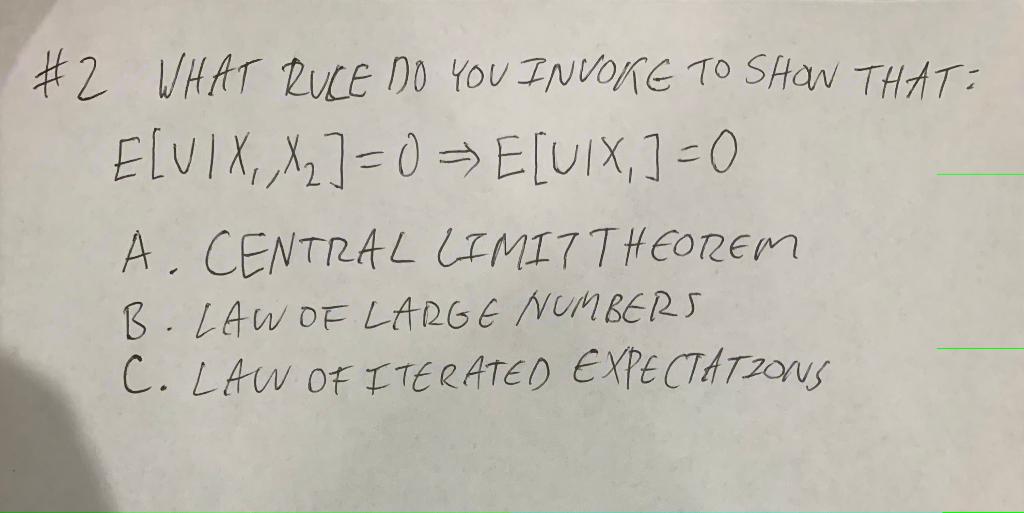 #2 WHAT RULE DO YOU INVOKE TO SHOW THAT:
E[U|X₁,X₂]=0 ⇒ E[U|X₁]=0
A. CENTRAL LIMIT THEOREM
B. LAW OF LARGE NUMBERS
C. LAW OF ITERATED EXPECTATIONS